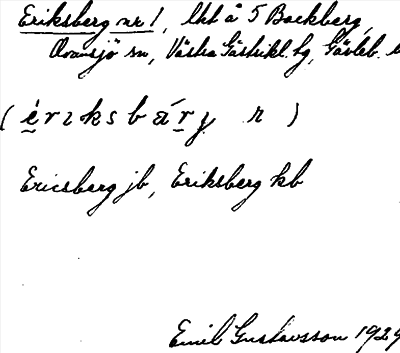 Eriksberg nr 1, lht å 5 Backberg,
Ovansjö sn, Västra Gästrikl. hg, Gävleb. l
(èrıksbárȷ r)
Ericsberg jb, Eriksberg kb
Emil Gustavsson 1929